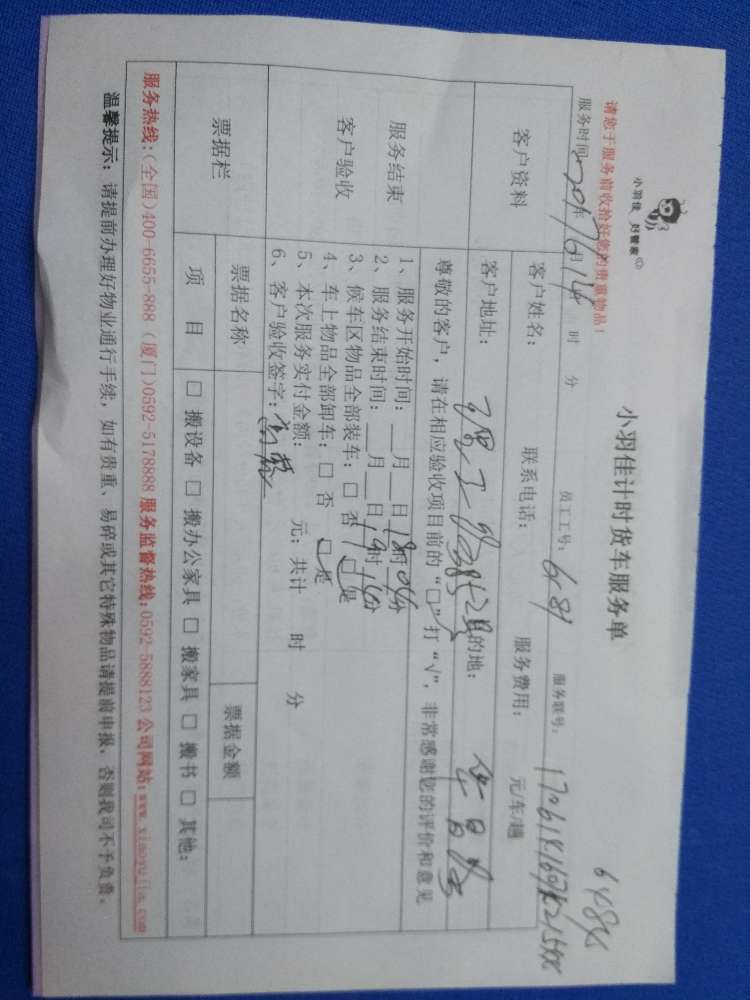 小羽佳 好管家
小羽佳计时货车服务单
请您于服务前收拾好您的贵重物品！
服务时间 年 月 14 时 分 员工工号： 服务联号：
客户资料
客户姓名： 联系电话： 服务费用： 元/车/趟
客户地址： 目的地：
尊敬的客户，请在相应验收项目前的“□”打“√”，非常感谢您的评价和意见
服务结束
客户验收
1、服务开始时间：__月__日18时 分
2、服务结束时间：__月__日19时 分
3、候车区物品全部装车：□ 否 □ 是
4、车上物品全部卸车：□ 否 □ 是
5、本次服务实付金额： 元；共计 时 分
6、客户验收签字：
票据栏
票据名称 票据金额
项 目 □ 搬设备 □ 搬办公家具 □ 搬家具 □ 搬书 □ 其他：
服务热线：（全国）400-6655-888（厦门）0592-5178888 服务监督热线：0592-5888123 公司网站：www.xiaoyujia.com
温馨提示：请提前办理好物业通行手续，如有贵重、易碎或其它特殊物品请提前申报，否则我司不予负责。